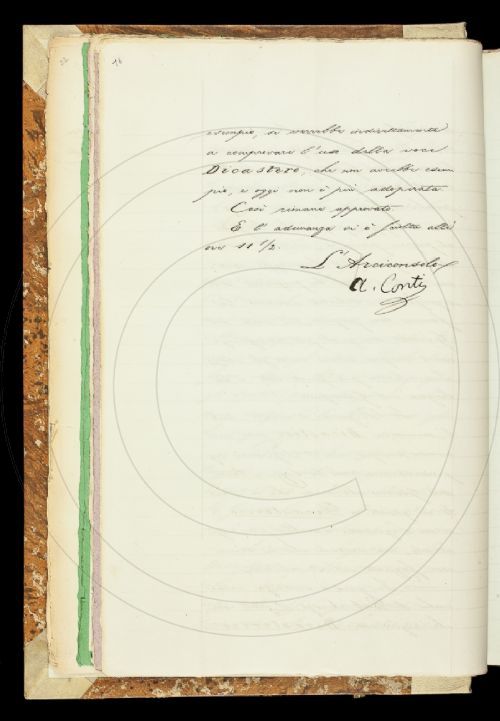 esempio, si verrebbe indirettamente
a comprovare l'uso della voce
Dicastero, che non avrebbe esem
pio, e oggi non è più adoprata.
Così rimane approvato.
E l'adunanza si è sciolta alle
ore 11 1/2.
L'Arciconsolo
A. Conti